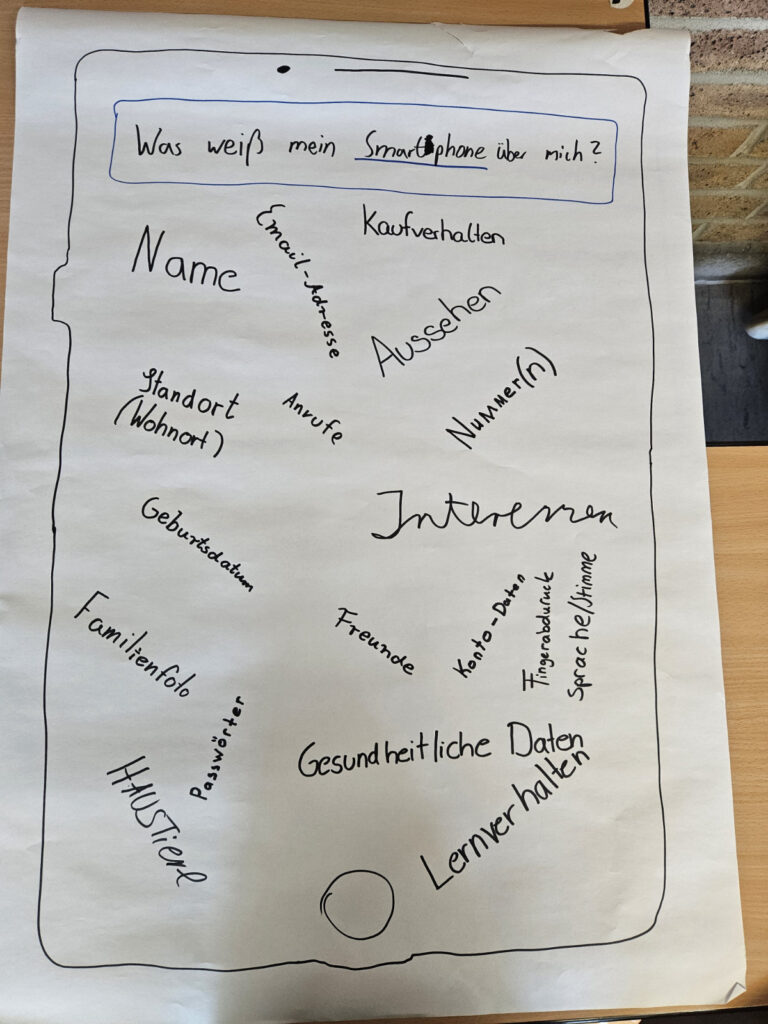 Was weiß mein Smartphone über mich?
Kaufverhalten
Email-Adresse
Name
Aussehen
Nummer(n)
Standort
(Wohnort)
Anrufe
Interessen
Geburtsdatum
Freunde
Konto-Daten
Fingerabduruck
Sprache/Stimme
Familienfoto
Passwörter
Gesundheitliche Daten
HAUSTiere
Lernverhalten